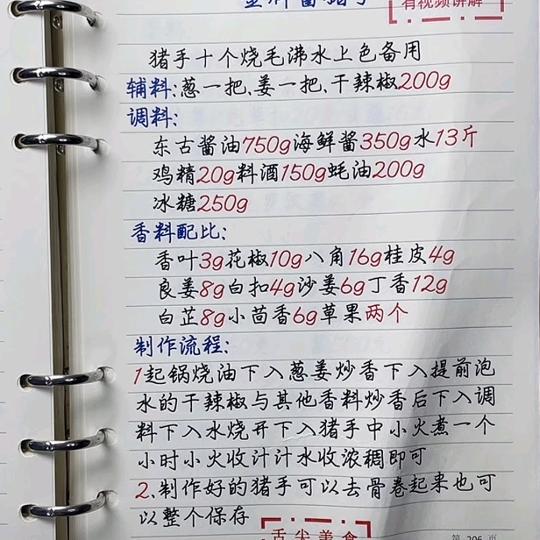 有视频讲解
猪手十个烧毛沸水上色备用
辅料:葱一把、姜一把、干辣椒200g
调料:
东古酱油750g海鲜酱350g水13斤
鸡精20g料酒150g蚝油200g
冰糖250g
香料配比:
香叶3g花椒10g八角16g桂皮4g
良姜8g白扣4g沙姜6g丁香12g
白芷8g小茴香6g草果两个
制作流程:
1起锅烧油下入葱姜炒香下入提前泡
水的干辣椒与其他香料炒香后下入调
料下入水烧开下入猪手中小火煮一个
小时小火收汁汁水收浓稠即可
2.制作好的猪手可以去骨卷起来也可
以整个保存
舌尖美食
第 206 页